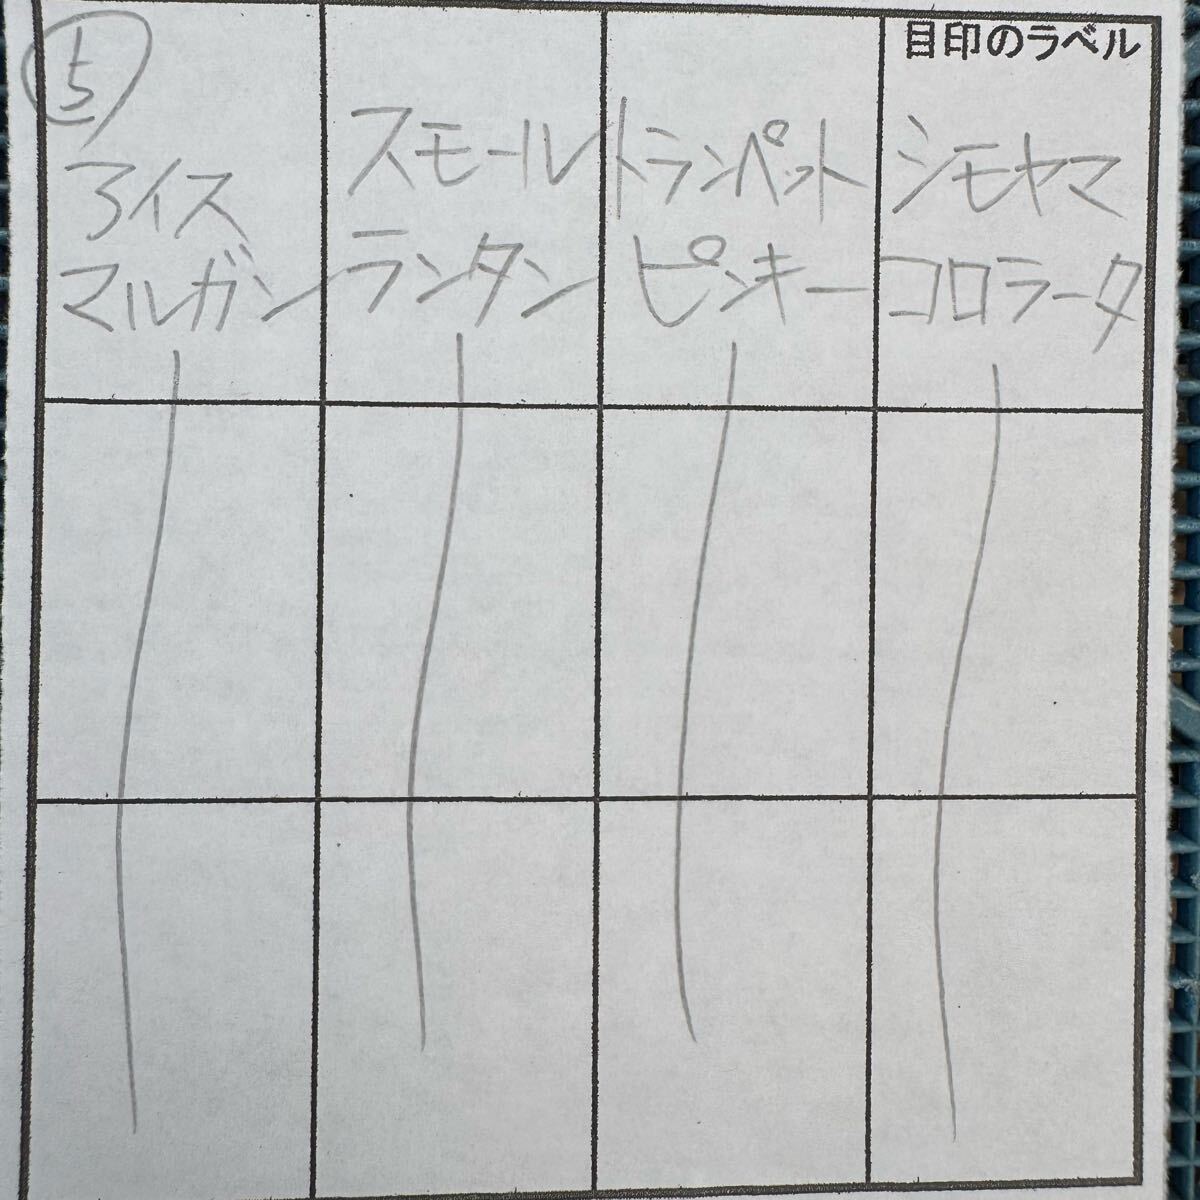 目印のラベル
⑤
アイス
マルガン
スモール
ランタン
トランペット
ピンキー
シモヤマ
コロラータ